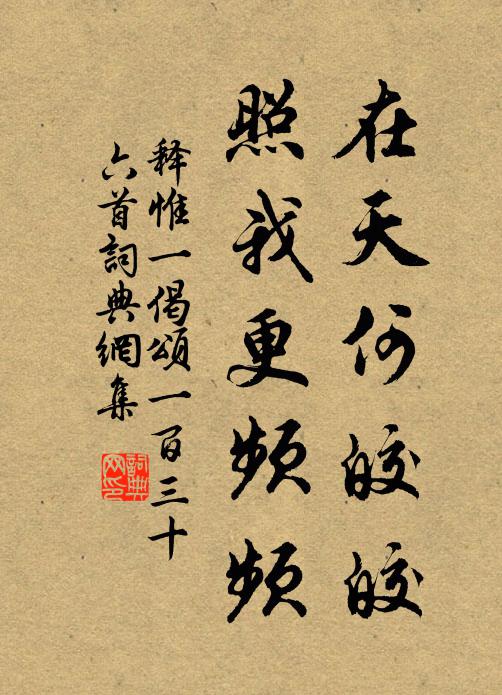 在天何皎皎
照我更频频
释惟一偈颂一百三十
六首詞典網集
詞典网印